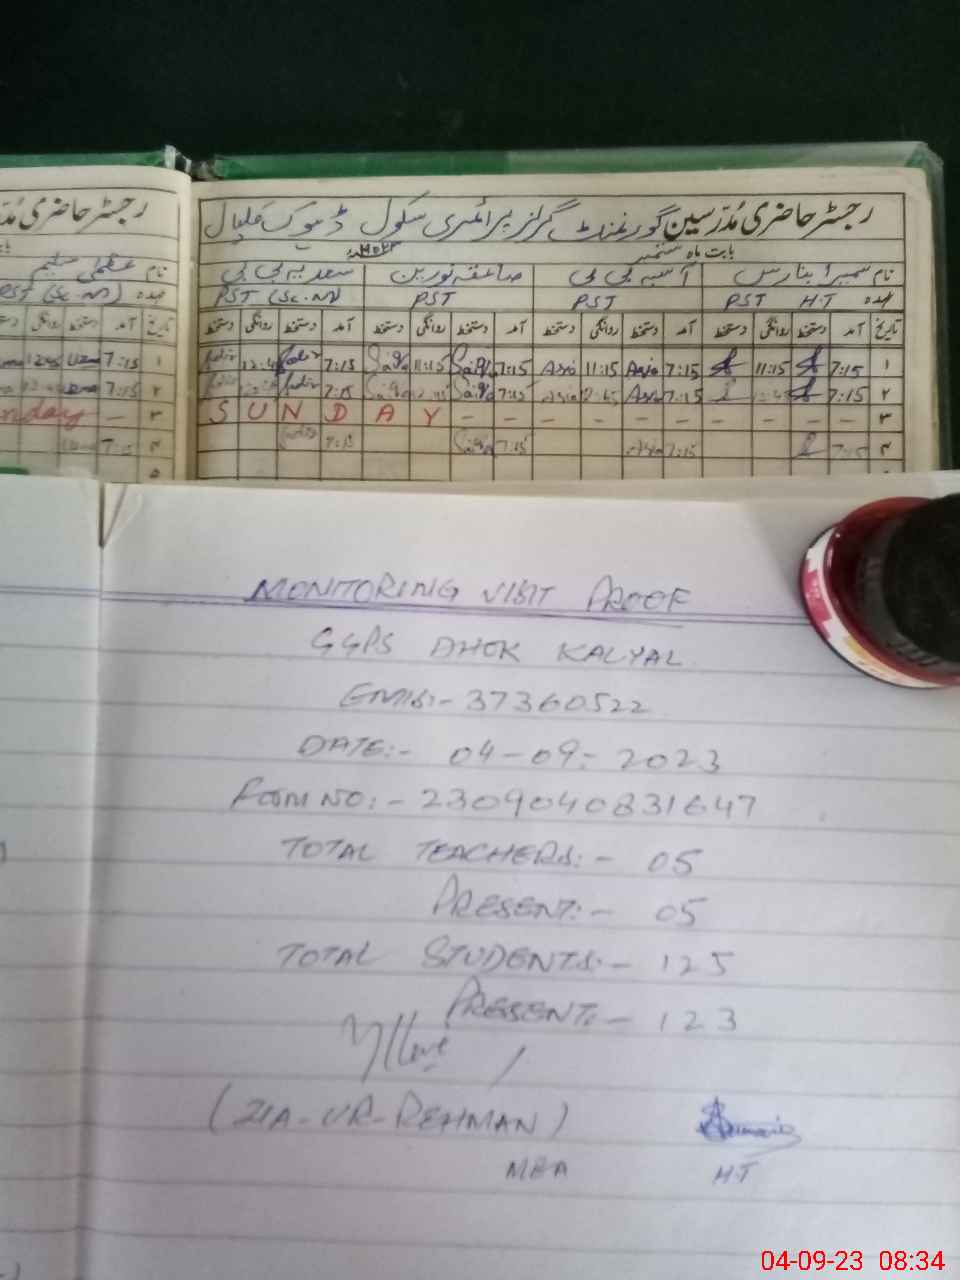 رجسٹر حاضری مُدرّسین گورنمنٹ گرلز پرائمری سکول ڈہوک کلیال
رجسٹر حاضری
بابت ماہ ستمبر ۲۰۲۳ء
نام سمیرا بنارس آسیہ بی بی صاعقہ نورین سعدیہ بی بی
نام عظمیٰ سلیم
عہدہ PST H.T PST PST PST (Sc.M)
عہدہ PST (Sc.M)
تاریخ آمد دستخط روانگی دستخط آمد دستخط روانگی دستخط آمد دستخط روانگی دستخط آمد دستخط روانگی دستخط
تاریخ آمد دستخط روانگی
۱ 7:15 11:15 7:15 Asia 11:15 Asia 7:15 Saiqa 11:15 Saiqa 7:15
۱ 7:15 Uzma 12:45
۲ 7:15 7:15 Asia 12:45 Asia 7:15 Saiqa 12:45 Saiqa 7:15
۲ 7:15
۳ – – – – – – – – – – S U N D A Y
nday –
۴ 7:15 7:15 Asia 7:15 Saiqa 7:15
۴ 7:15
۵
MONITORING VISIT PROOF
GGPS DHOK KALYAL
EMIS:- 37360522
DATE:- 04-09-2023
FORM NO:- 2309040831647
TOTAL TEACHERS:- 05
PRESENT:- 05
TOTAL STUDENTS:- 125
PRESENT:- 123
(ZIA-UR-REHMAN)
MEA H.T
04-09-23 08:34